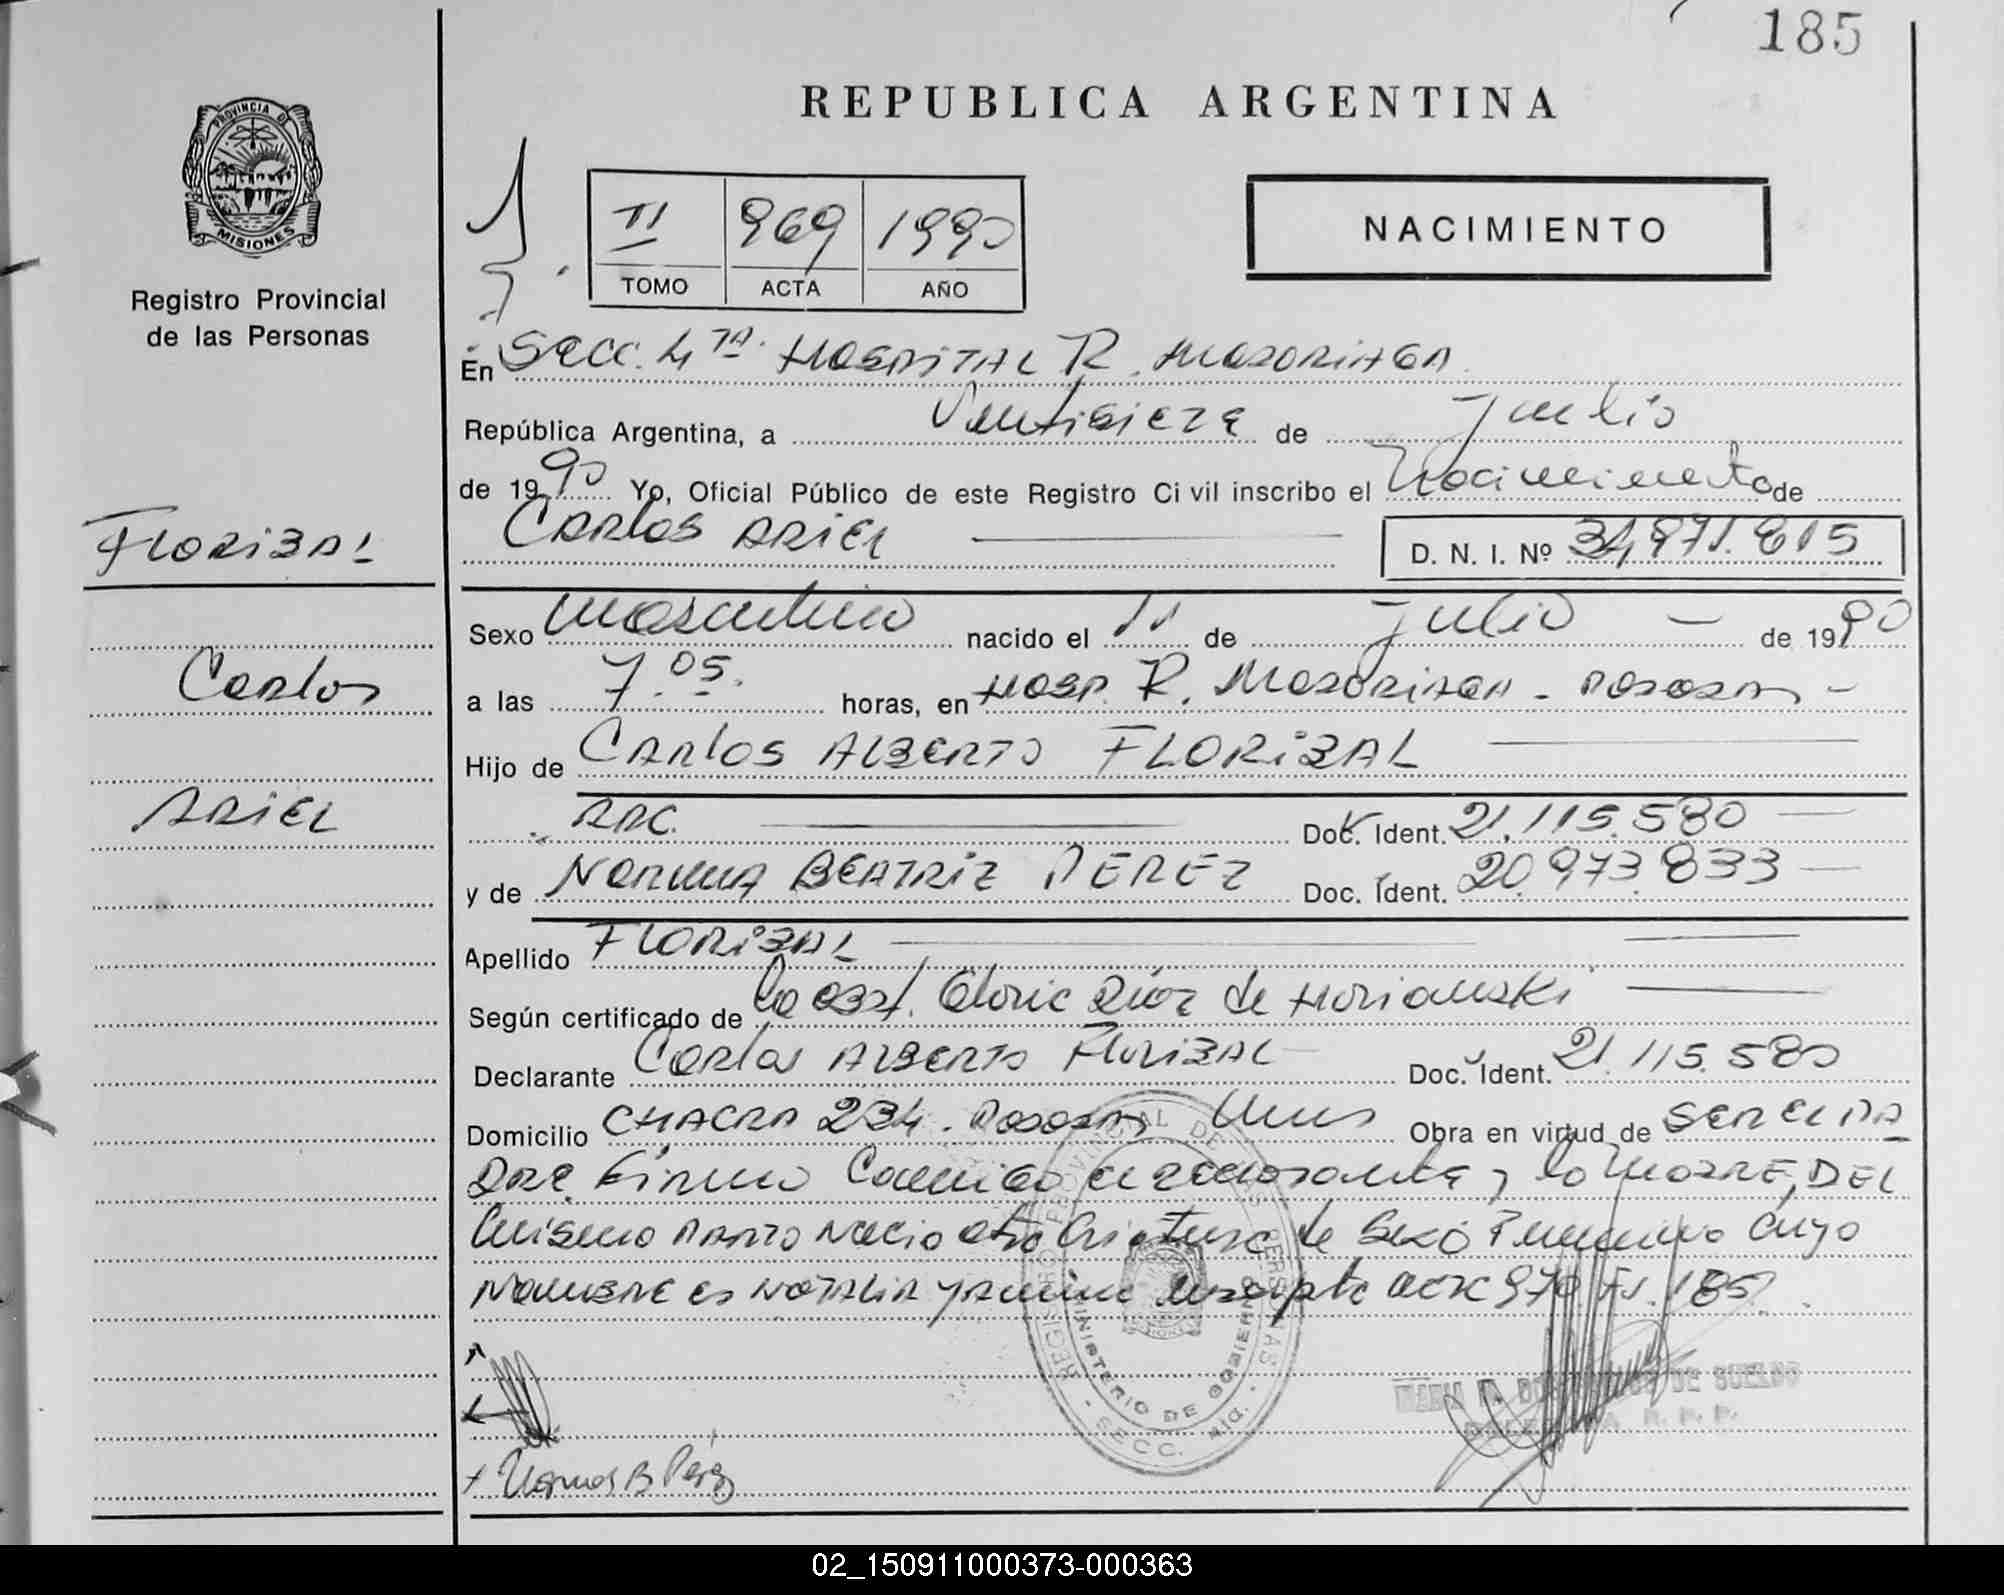 185
REPUBLICA ARGENTINA
PROVINCIA DE
MISIONES
Registro Provincial
de las Personas
II 969 1990
TOMO ACTA AÑO
NACIMIENTO
En Secc. 4TA. HOSPITAL R. MADARIAGA
República Argentina, a Veintisiete de Julio
de 1990 Yo, Oficial Público de este Registro Civil inscribo el Nacimiento de
CARLOS ARIEL
D. N. I. Nº 34,971.815
FLORIBAL
Carlos
ARIEL
Sexo masculino nacido el 11 de julio de 1990
a las 7.05. horas, en HOSP. R. MADARIAGA - POSADAS
Hijo de CARLOS ALBERTO FLORIBAL
ARG. Doc. Ident. 21.115.580
y de NORMA BEATRIZ PEREZ Doc. Ident. 20.973.833
Apellido FLORIBAL
Según certificado de la obst. Gloria Díaz de
Declarante Carlos ALBERTO FLORIBAL Doc. Ident. 21.115.580
Domicilio CHACRA 234. POSADAS Mnes Obra en virtud de SER EL PA
DRE. Firma Conmigo el declarante y la MADRE, DEL
mismo PARTO Nacio otra Criatura de Sexo Femenino Cuyo
NOMBRE es NATALIA YAMINA inscripta acta 970. Fº. 185.
REGISTRO PROVINCIAL DE LAS PERSONAS
MINISTERIO DE GOBIERNO
MISIONES
- SECC. 4ta. -
MARIA DE SUELDO
DELEGADA R. P. P.
Norma B Pérez
02_150911000373-000363